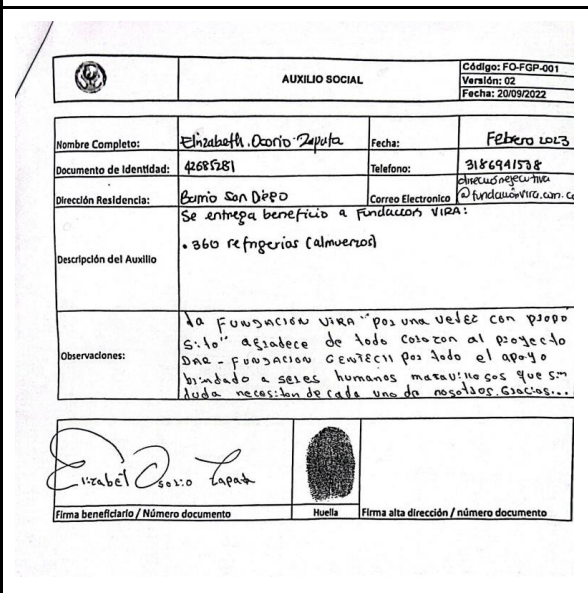 AUXILIO SOCIAL
Código: FO-FGP-001
Versión: 02
Fecha: 20/09/2022
Nombre Completo: Elizabeth Osorio Zapata Fecha: Febero 2023
Documento de Identidad: 42685281 Telefono: 3186941538
Dirección Residencia: Barrio San Diego Correo Electronico direccionejecutiva
@fundacionvira.com.co
Se entrega beneficio a Fundacion VIRA:
Descripción del Auxilio
• 360 refrigerios (almuerzos)
Observaciones:
la FUNDACIÓN VIRA "por una vejez con propo
sito" agradece de todo corazon al proyecto
DAR - FUNDACION GENTECH por todo el apoyo
brindado a seres humanos maravillosos que sin
duda necesitan de cada uno de nosotros. Gracias...
Elizabet Osorio Zapata
Firma beneficiario / Número documento Huella Firma alta dirección / número documento